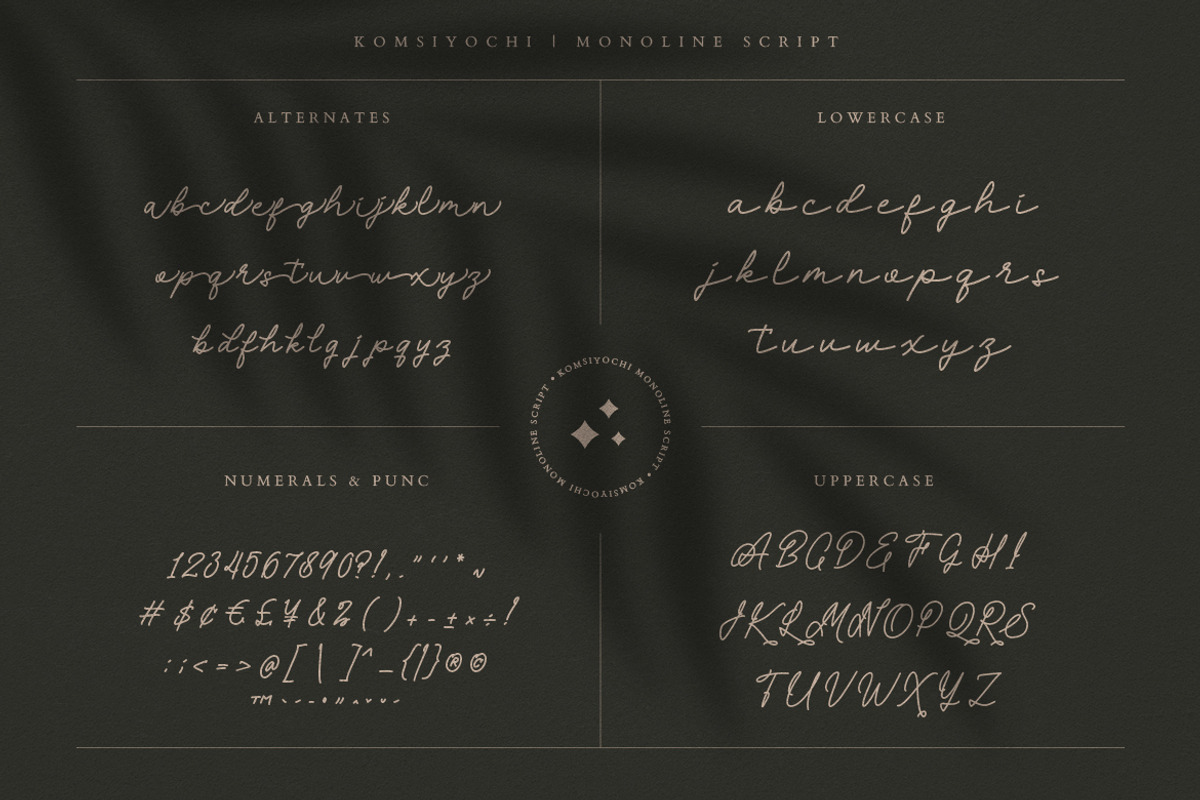 KOMSIYOCHI | MONOLINE SCRIPT
ALTERNATES
abcdefghijklmn
opqrstuvwxyz
bdfhklgjpqyz
LOWERCASE
abcdefghi
jklmnopqrs
tuvwxyz
KOMSIYOCHI MONOLINE SCRIPT • KOMSIYOCHI MONOLINE SCRIPT •
NUMERALS & PUNC
1234567890?!,."“‘’*~
#$¢€£¥&2()+-±×÷!
:;<=>@[\]^_{|}®©
™
UPPERCASE
ABCDEFGHI
JKLMNOPQRS
TUVWXYZ